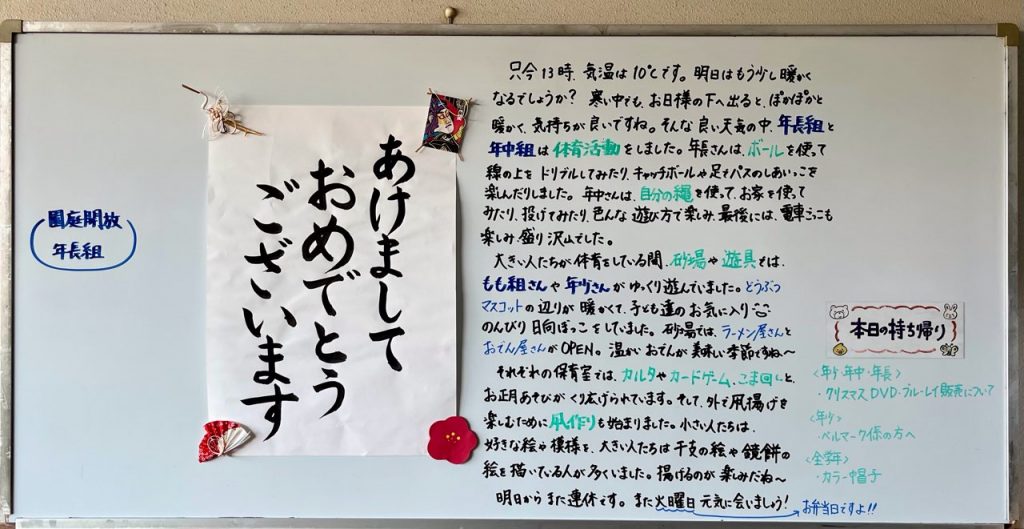 園庭開放
年長組
あけまして
おめでとう
ございます
只今13時、気温は10℃です。明日はもう少し暖かく
なるでしょうか？ 寒い中でも、お日様の下へ出ると、ぽかぽかと
暖かく、気持ちが良いですね。そんな良い天気の中、年長組と
年中組は体育活動をしました。年長さんは、ボールを使って
線の上をドリブルしてみたり、キャッチボールや足でパスのしあいっこを
楽しんだりしました。年中さんは、自分の縄を使って、お家を使って
みたり、投げてみたり、色んな遊び方で楽しみ、最後には、電車ごっこも
楽しみ、盛り沢山でした。
大きい人たちが体育をしている間、砂場や遊具では、
もも組さんや年少さんがゆっくり遊んでいました。どうぶつ
マスコットの辺りが暖かくて、子ども達のお気に入り
のんびり日向ぼっこをしていました。砂場では、ラーメン屋さんと
おでん屋さんがOPEN。温かいおでんが美味しい季節ですね〜
それぞれの保育室では、カルタやカードゲーム、こま回しと、
お正月あそびがくり広げられています。そして、外で凧揚げを
楽しむために凧作りも始まりました。小さい人たちは、
好きな絵や模様を、大きい人たちは干支の絵や鏡餅の
絵を描いている人が多くいました。揚げるのが楽しみだね〜
明日からまた連休です。また火曜日元気に会いましょう！
お弁当日ですよ!!
本日の持ち帰り
〈年少・年中・年長〉
・クリスマスDVD・ブルーレイ販売について
〈年少〉
・ベルマーク係の方へ
〈全学年〉
・カラー帽子